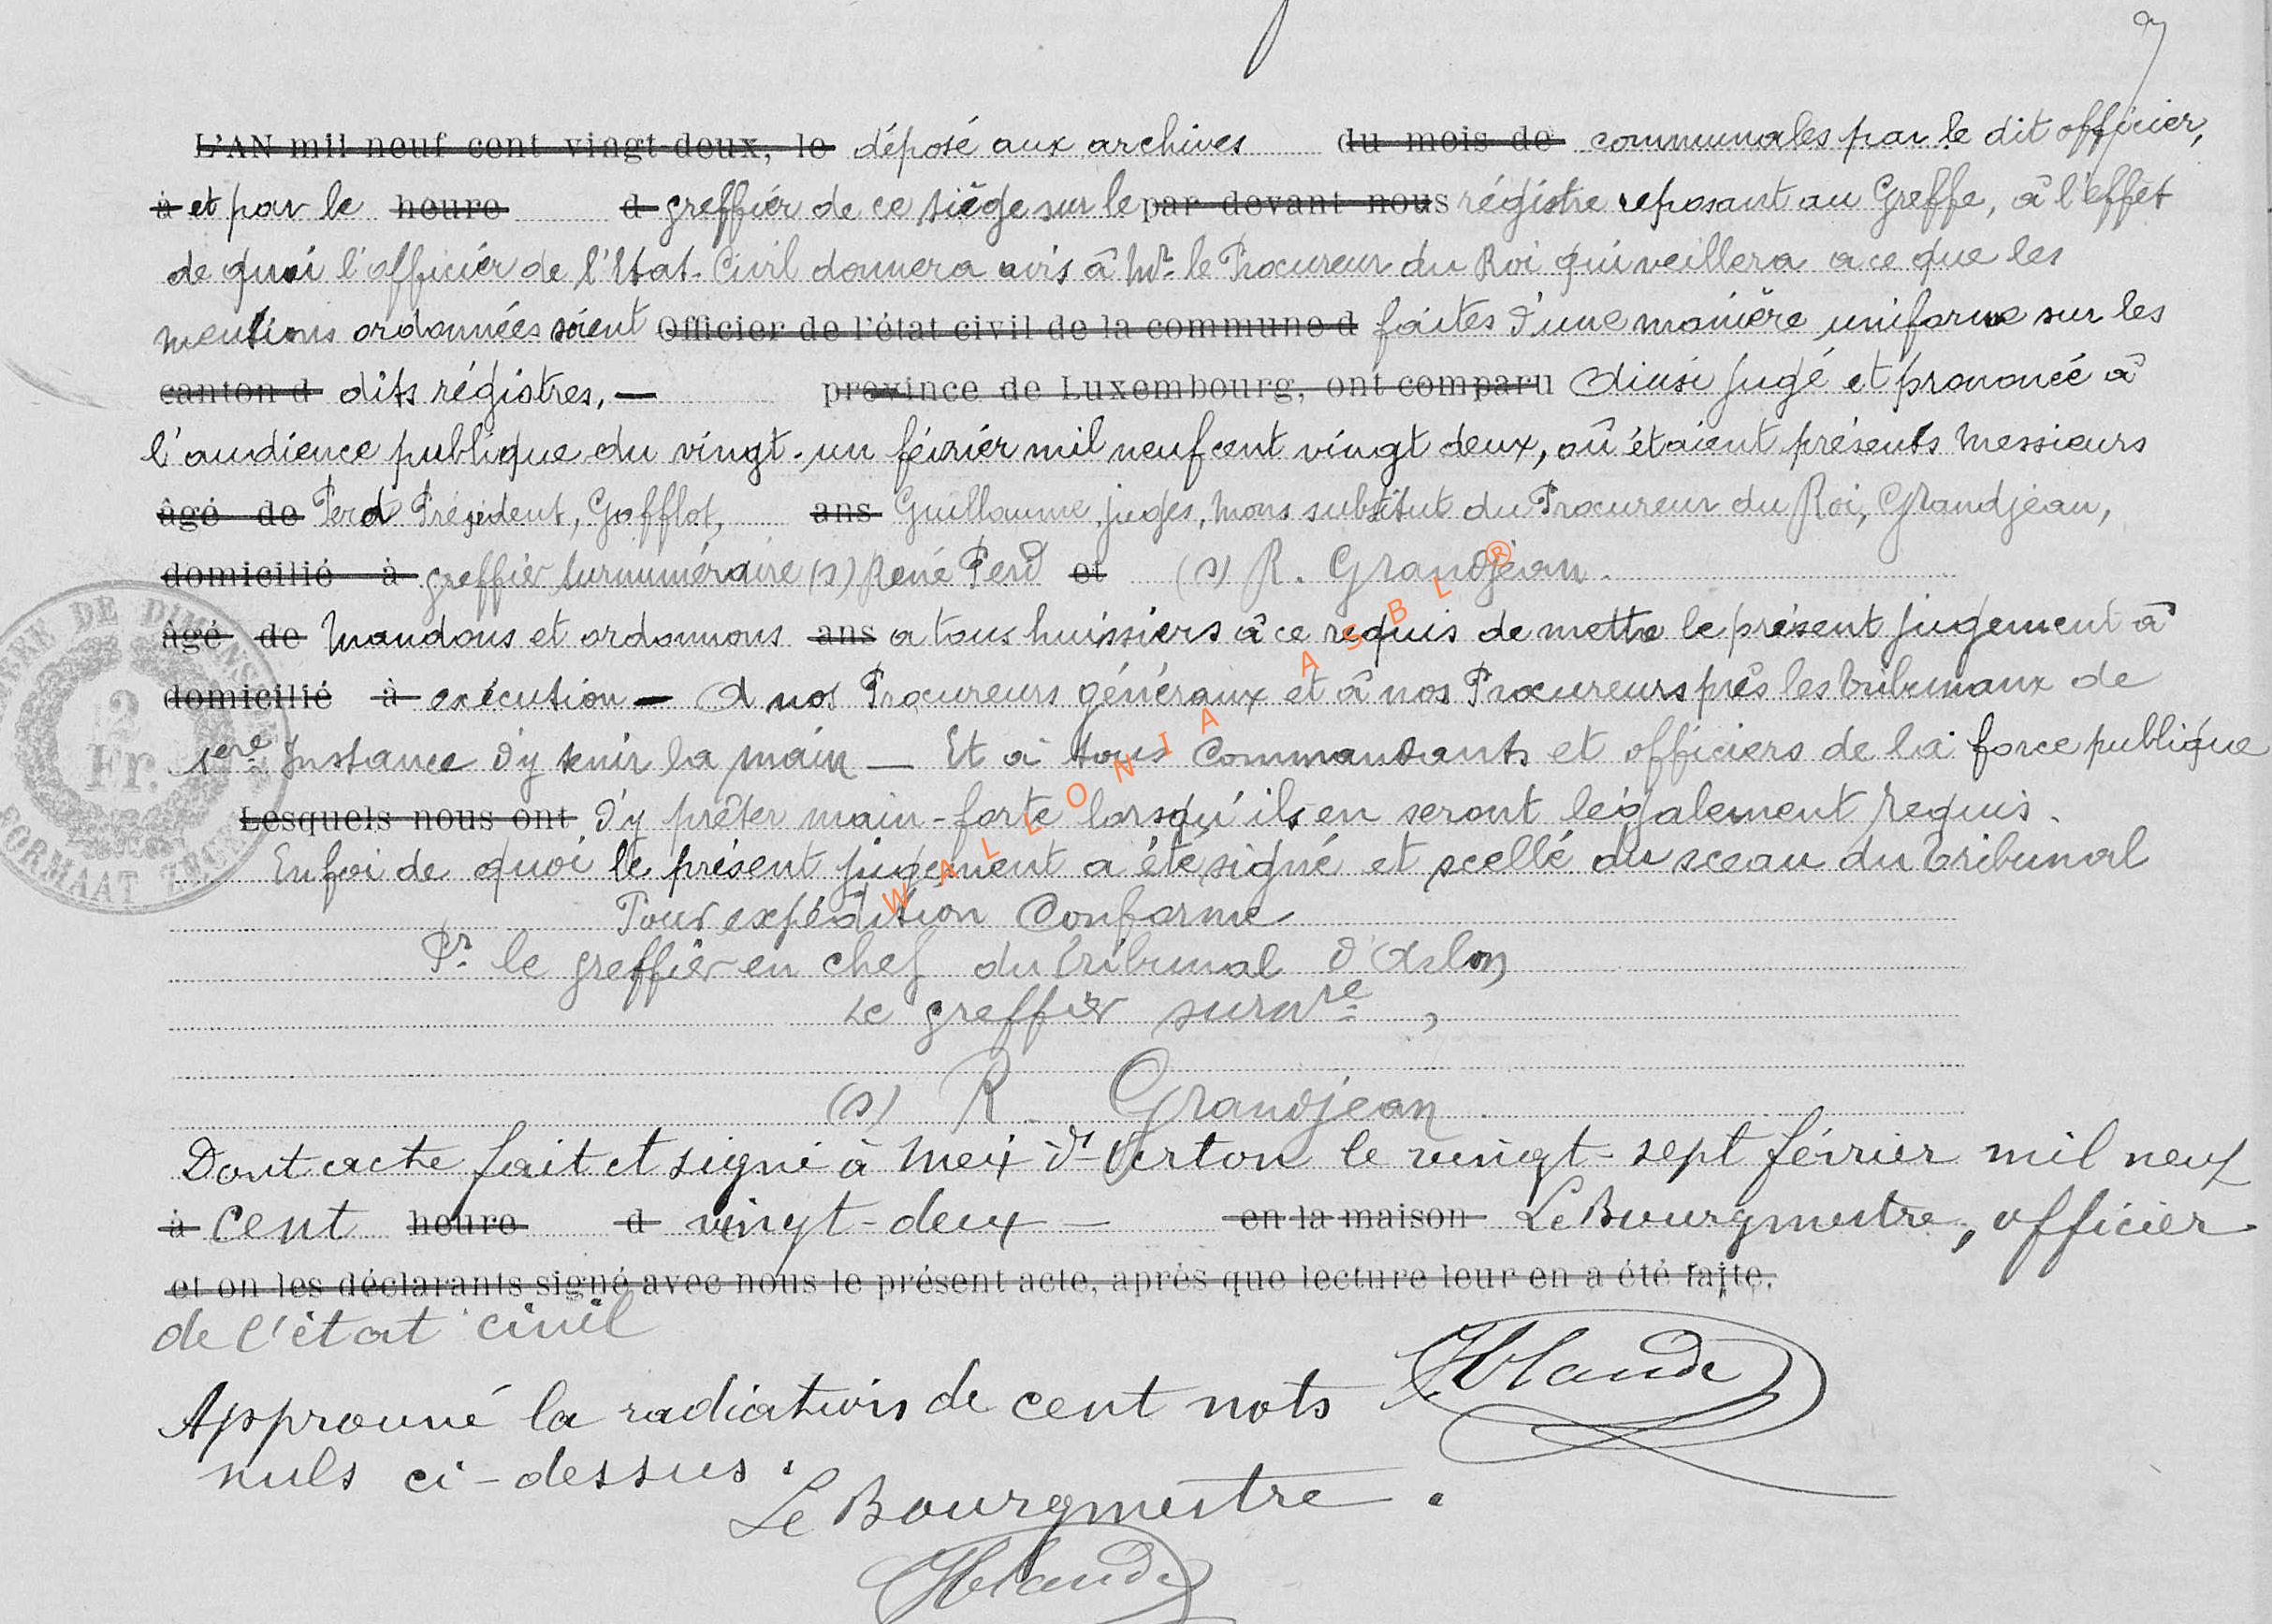 L'AN mil neuf cent vingt-deux, le déposé aux archives du mois de communales par le dit officier,
à et par le heure d greffier de ce siège sur le par devant nous régistre reposant au Greffe, â l'effet
de quoi l'officier de l'Etat-Civil donnera avis â Mr. le Procureur du Roi qui veillera a ce que les
mentions ordonnées soient Officier de l'état civil de la commune d faites d'une manière uniforme sur les
canton d dits régistres, — province de Luxembourg, ont comparu Ainsi jugé et prononcé â
l'audience publique du vingt-un février mil neuf cent vingt deux, oû étaient présents Messieurs
âgé de Perd Président, Gofflot, ans Guillaume, juges, Mons substitut du Procureur du Roi, Grandjean,
domicilié à greffier surnuméraire (s) René Perd et (s) R. Grandjean.
âgé de Mandons et ordonnons ans a tous huissiers â ce requis de mettre le présent jugement â
domicilié à exécution — A nos Procureurs généraux et â nos Procureurs près les tribunaux de
1ere Instance d'y tenir la main — Et à tous Commandants et officiers de la force publique
Lesquels nous ont d'y prêter main-forte lorsqu'ils en seront légalement requis.
En foi de quoi le présent jugement a été signé et scellé du sceau du tribunal
Pour expédition Conforme
Pr. le greffier en chef du tribunal d'Arlon
Le greffier surnre,
(s) R. Grandjean
Dont acte fait et signé à Meix-dt-Virton le vingt-sept février mil neuf
à cent heure d vingt-deux — en la maison Le Bourgmestre, officier
et on les déclarants signé avec nous le présent acte, après que lecture leur en a été faite.
de l'état civil
Approuvé la radiation de cent mots
nuls ci-dessus.
Le Bourgmestre.
2
Fr.
WALLONIA ASBL ®